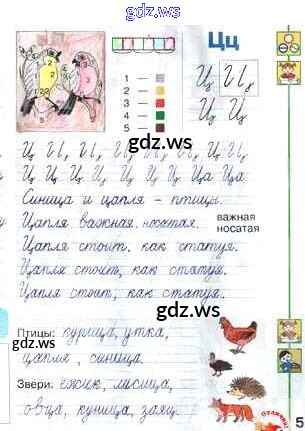 gdz.ws
Цц
2 2
1
3
1 —
2 —
3 —
4 —
5 —
gdz.ws
Ц Ц Ц Ц Ц Ц Ц
Ц Ц Ц Ц Ц Ц Ца Ца
Синица и цапля – птицы.
Цапля важная, носатая.
важная
носатая
Цапля стоит, как статуя.
Цапля стоит, как статуя.
Цапля стоит, как статуя.
Птицы: курица, утка,
gdz.ws
цапля, синица.
Звери: ёжик, лисица,
gdz.ws
овца, куница, заяц.
Отлично!
5